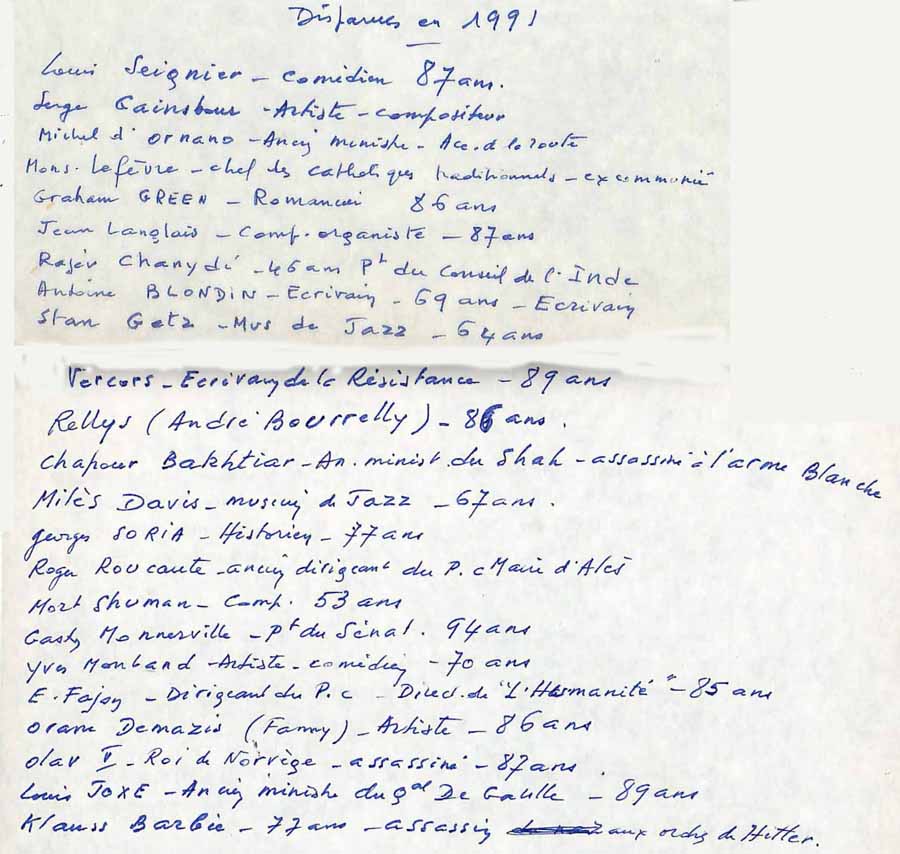 Disparues en 1991
Louis Seignier - comédien 87 ans.
Serge Gainsbour - Artiste - compositeur
Michel d'ornano - Ancien ministre - Acc. d la route
Mons. Lefèvre - chef des catholiques traditionnels - excommunié
Graham GREEN - Romancier 86 ans
Jean Langlais - Comp. organiste - 87 ans
Rajèv Chanydi - 46 ans Pt du Conseil de l'Inde
Antoine BLONDIN - Ecrivain - 69 ans - Ecrivain
Stan Getz - Mus de Jazz - 64 ans
Vercors - Ecrivain de la Résistance - 89 ans
Rellys (André Bourrelly) - 86 ans.
Chapour Bakhtiar - An. minist. du Shah - assassiné à l'arme Blanche
Milès Davis - musicien de Jazz - 67 ans.
georges SORIA - Historien - 77 ans
Roger Roucaute - ancien dirigeant du P.c Maire d'Alès
Mort Shuman - Comp. 53 ans
Gaston Monnerville - Pt du Sénat. 94 ans
Yves Montand - Artiste - comédien - 70 ans
E. Fajon - Dirigeant du P.c - Direct. de "L'Humanité" - 85 ans
Orane Demazis (Fanny) - Artiste - 86 ans
Olav V - Roi de Norvège - assassiné - 87 ans.
Louis JOXE - Ancien ministre du gal De Gaulle - 89 ans
Klauss Barbie - 77 ans - assassin aux ordres de Hitler.